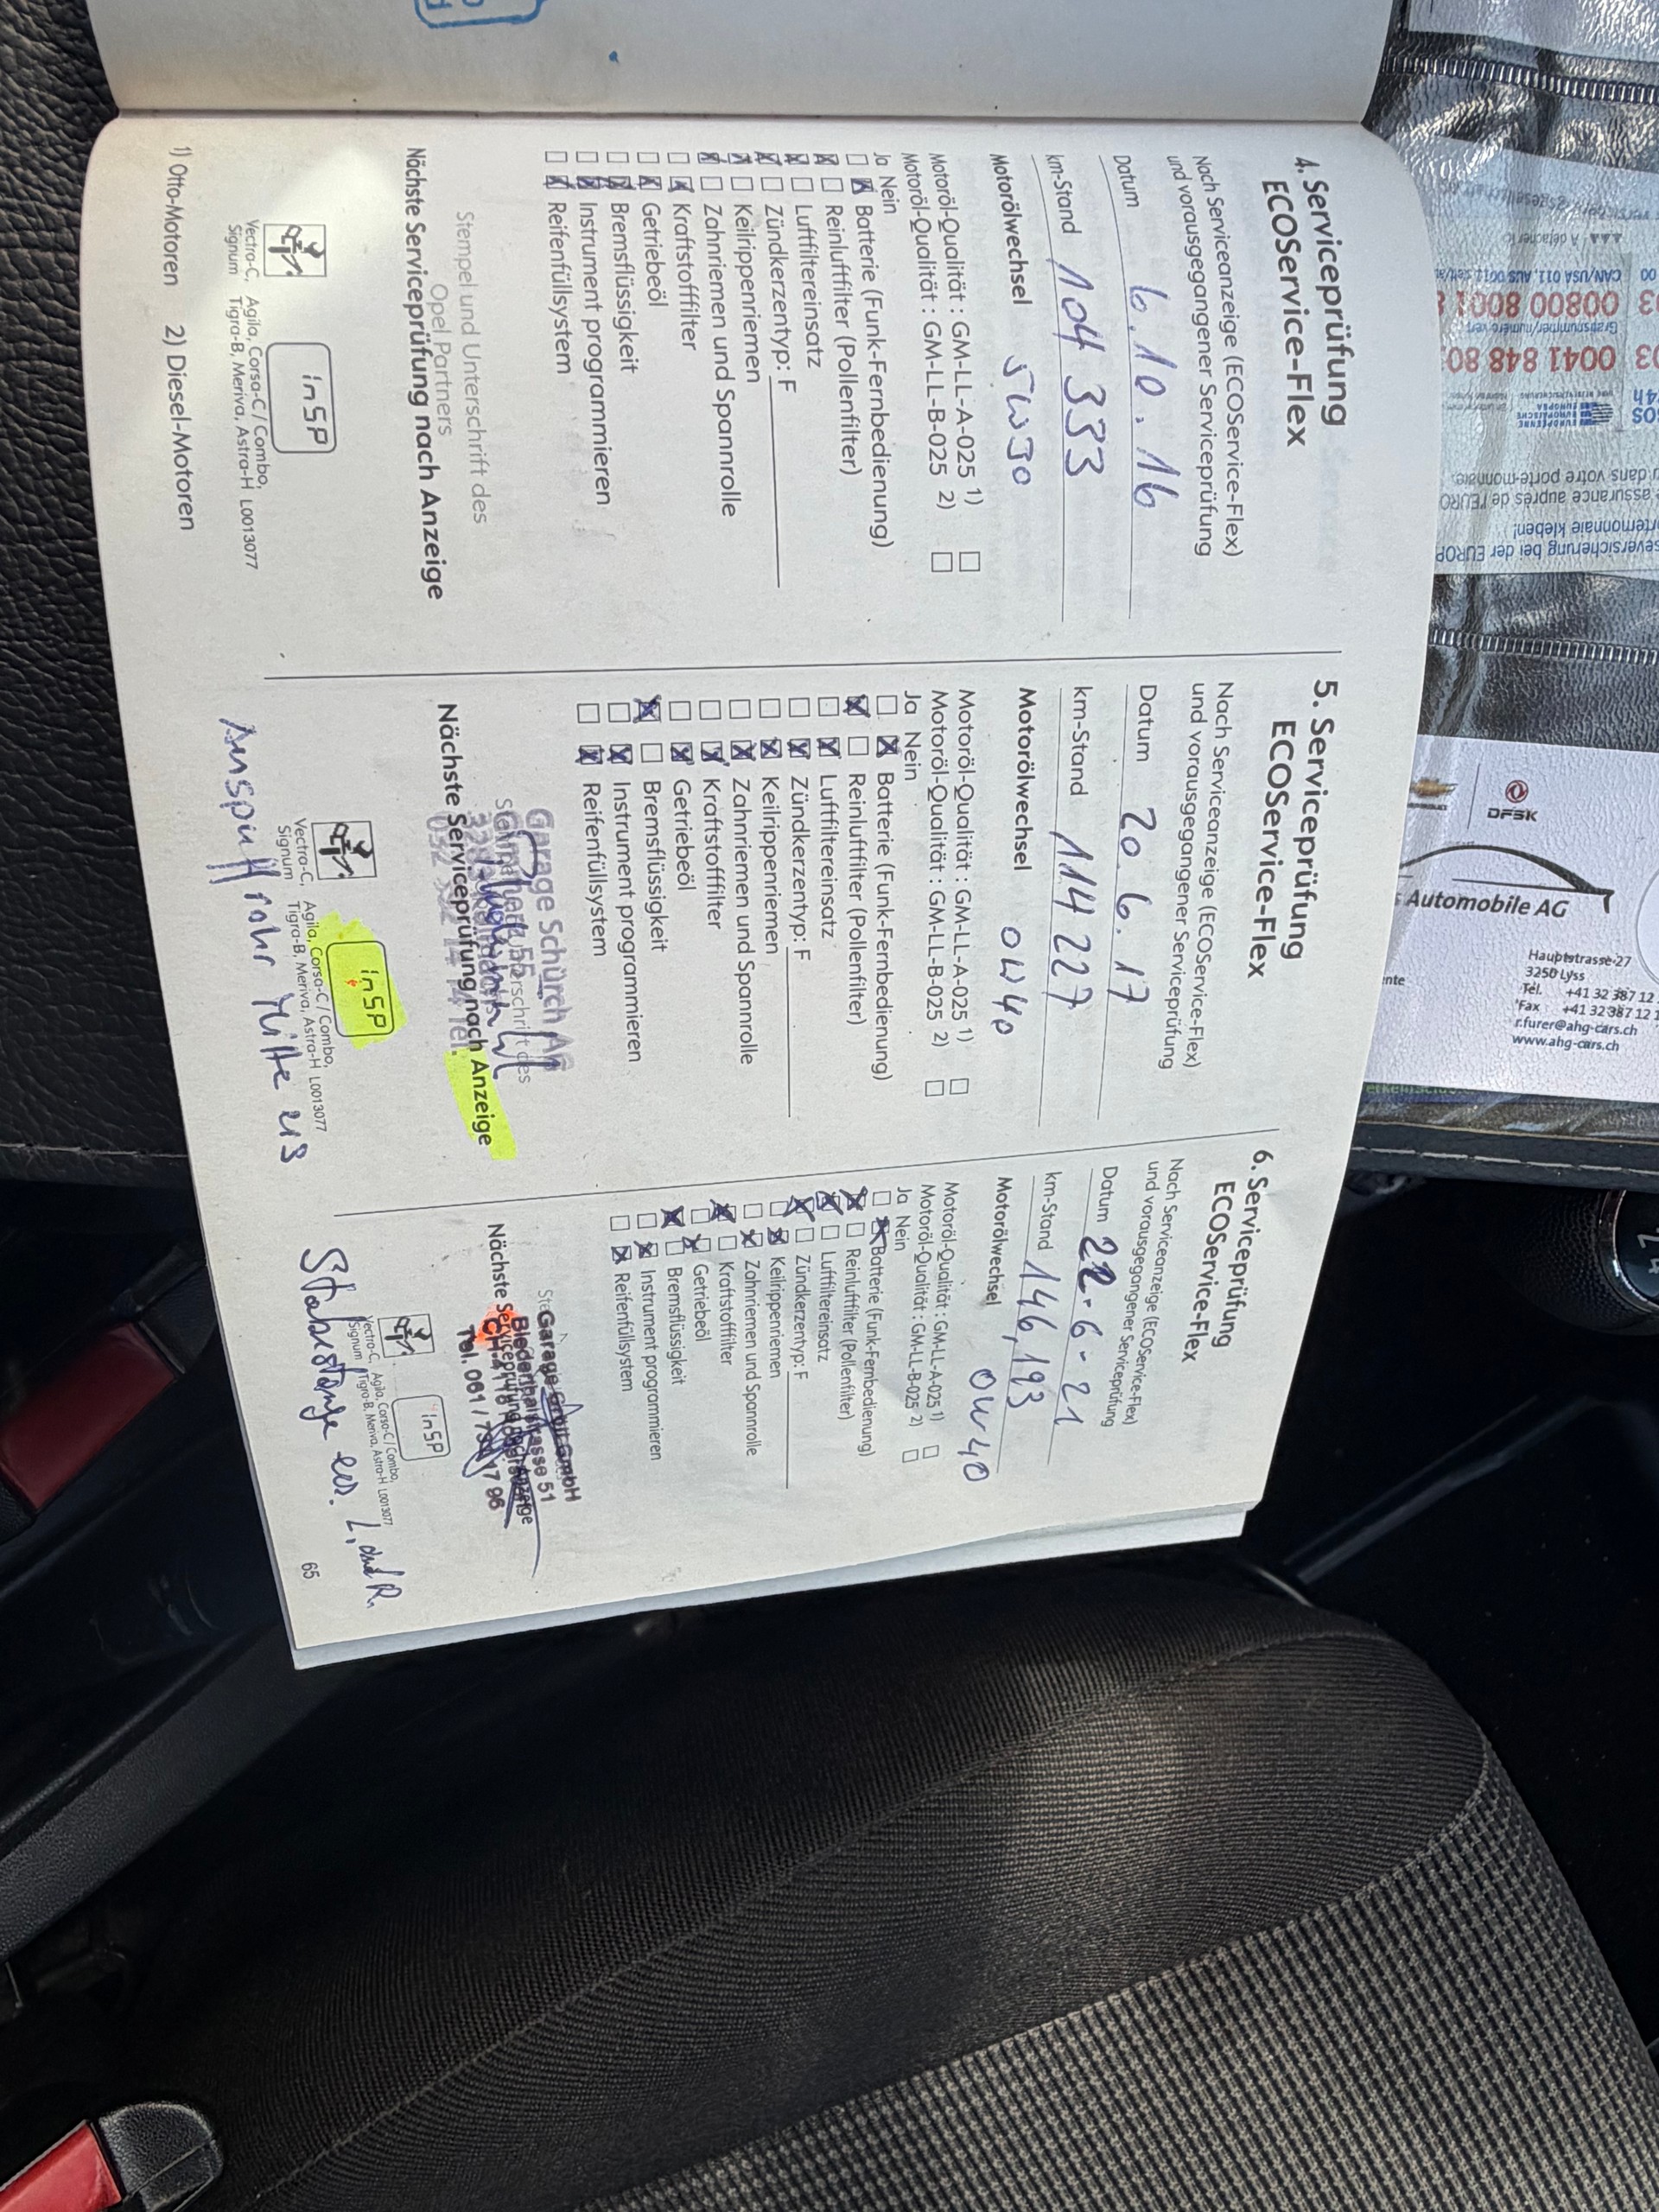 4. Serviceprüfung
ECOService-Flex
Nach Serviceanzeige (ECOService-Flex)
und vorausgegangener Serviceprüfung
Datum 6.10.16
km-Stand 104 333
Motorölwechsel 5W30
Motoröl-Qualität : GM-LL-A-025 1) ☐
Motoröl-Qualität : GM-LL-B-025 2) ☐
Ja Nein
☐ ☒ Batterie (Funk-Fernbedienung)
☒ ☐ Reinluftfilter (Pollenfilter)
☒ ☐ Luftfiltereinsatz
☒ ☐ Zündkerzentyp: F
☒ ☐ Keilrippenriemen
☒ ☐ Zahnriemen und Spannrolle
☐ ☒ Kraftstofffilter
☐ ☒ Getriebeöl
☐ ☒ Bremsflüssigkeit
☐ ☒ Instrument programmieren
☐ ☒ Reifenfüllsystem
Stempel und Unterschrift des
Opel Partners
Nächste Serviceprüfung nach Anzeige
inSP
Vectra-C, Agila, Corsa-C / Combo,
Signum Tigra-B, Meriva, Astra-H L0013077
1) Otto-Motoren 2) Diesel-Motoren
5. Serviceprüfung
ECOService-Flex
Nach Serviceanzeige (ECOService-Flex)
und vorausgegangener Serviceprüfung
Datum 20.6.17
km-Stand 114 227
Motorölwechsel 0W40
Motoröl-Qualität : GM-LL-A-025 1) ☐
Motoröl-Qualität : GM-LL-B-025 2) ☐
Ja Nein
☐ ☒ Batterie (Funk-Fernbedienung)
☒ ☐ Reinluftfilter (Pollenfilter)
☐ ☒ Luftfiltereinsatz
☐ ☒ Zündkerzentyp: F
☐ ☒ Keilrippenriemen
☐ ☒ Zahnriemen und Spannrolle
☐ ☒ Kraftstofffilter
☐ ☒ Getriebeöl
☒ ☐ Bremsflüssigkeit
☐ ☒ Instrument programmieren
☐ ☒ Reifenfüllsystem
Garage Schürch AG
Nächste Serviceprüfung nach Anzeige
inSP
Vectra-C, Agila, Corsa-C / Combo,
Signum Tigra-B, Meriva, Astra-H L0013077
Auspuffrohr Mitte ers
6. Serviceprüfung
ECOService-Flex
Nach Serviceanzeige (ECOService-Flex)
und vorausgegangener Serviceprüfung
Datum 22-6-21
km-Stand 146,193
Motorölwechsel 0W40
Motoröl-Qualität : GM-LL-A-025 1) ☐
Motoröl-Qualität : GM-LL-B-025 2) ☐
Ja Nein
☐ ☒ Batterie (Funk-Fernbedienung)
☒ ☐ Reinluftfilter (Pollenfilter)
☒ ☐ Luftfiltereinsatz
☒ ☐ Zündkerzentyp: F
☐ ☒ Keilrippenriemen
☐ ☒ Zahnriemen und Spannrolle
☒ ☐ Kraftstofffilter
☐ ☒ Getriebeöl
☒ ☐ Bremsflüssigkeit
☐ ☒ Instrument programmieren
☐ ☒ Reifenfüllsystem
Garage GmbH
Biederthalstrasse 51
Nächste Serviceprüfung nach Anzeige
Tel. 061 / 17 96
inSP
Vectra-C, Agila, Corsa-C / Combo,
Signum Tigra-B, Meriva, Astra-H L0013077
Stabistange ers. L, und R,
65
DFSK
Automobile AG
Hauptstrasse 27
3250 Lyss
Tél. +41 32 387 12
Fax +41 32 387 12 1
r.furer@ahg-cars.ch
www.ahg-cars.ch
0041 848 80
00800 8001
Gratisnummer/numéro vert
CAN/USA 011, AUS 0011
A détacher ic
EUROPÄISCHE
dans votre porte-monnaie.
assurance auprès de l'EURO
ortemonnaie kleben!
seversicherung bei der EUROP